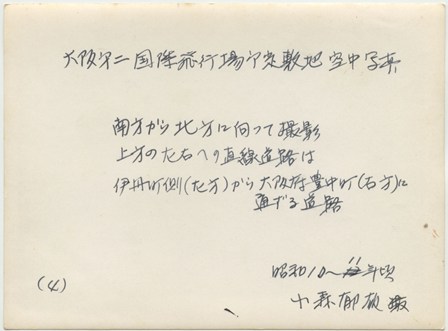 大阪第二国際飛行場予定敷地空中写真
南方から北方に向って撮影
上方の左右への直線道路は
伊丹町側(左方)から大阪府豊中町(右方)に
通ずる道路
昭和10〜11年頃
小森郁雄
(4)